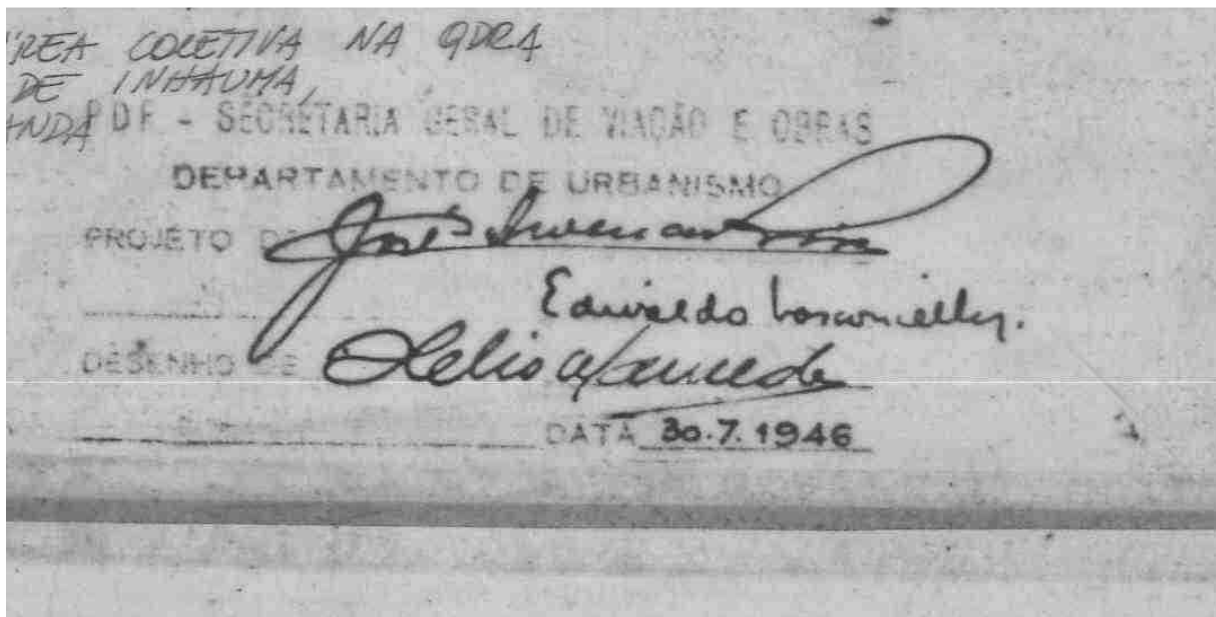 ÁREA COLETIVA NA QDRA
DE INHAÚMA,
ANDA
PDF - SECRETARIA GERAL DE VIAÇÃO E OBRAS
DEPARTAMENTO DE URBANISMO
PROJETO DE José
Edwaldo Vasconcellos.
DESENHO DE Lelio
DATA 30.7.1946